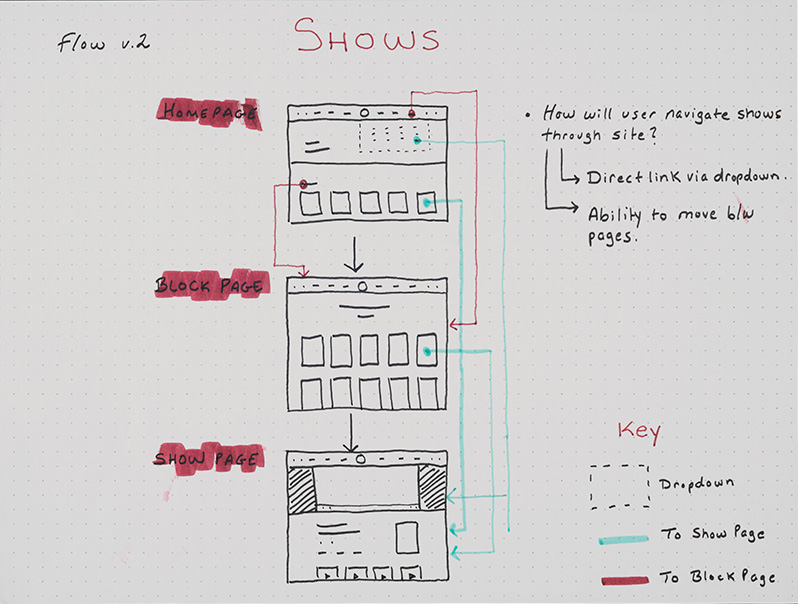 Flow v.2
SHOWS
HOMEPAGE
• How will user navigate shows
through site?
Direct link via dropdown.
Ability to move b/w
pages.
BLOCK PAGE
SHOW PAGE
Key
Dropdown
To Show Page
To Block Page